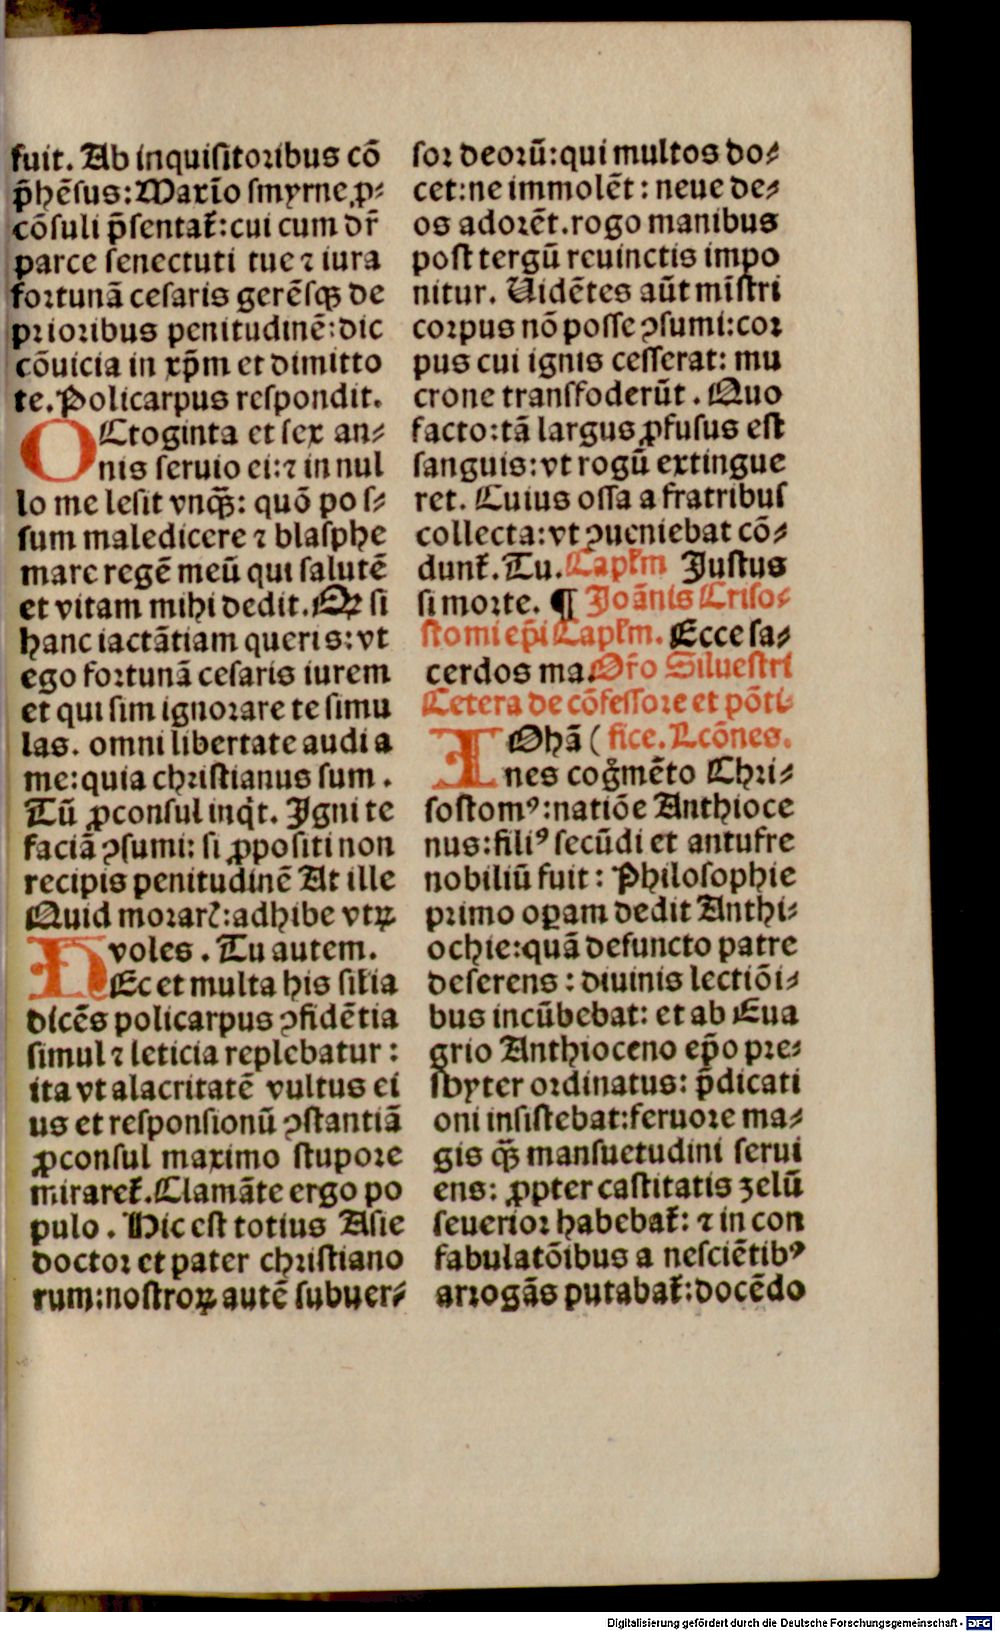 fuit. Ab inquisitoribus cō
p̄hēsus: Maxīo smyrne ꝓ⸗
cōsuli p̄sentat᷑: cui cum dr̄
parce senectuti tue ⁊ iura
fortunā cesaris gerēsqꝫ de
prioribus penitudinē: dic
cōuicia in xp̄m et dimitto
te. Policarpus respondit.
OCtoginta et sex an⸗
nis seruio ei: ⁊ in nul
lo me lesit vnqꝫ̄: quō pos⸗
sum maledicere ⁊ blasphe
mare regē meū qui salutē
et vitam mihi dedit. Qꝫ si
hanc iactātiam queris: vt
ego fortunā cesaris iurem
et qui sim ignorare te simu
las. omni libertate audi a
me: quia christianus sum.
Tū ꝓconsul inq̇t. Igni te
faciā ꝯsumi: si ꝓpositi non
recipis penitudinē At ille
Quid morar᷑: adhibe vtꝝ
voles. Tu autem.
HEc et multa his sil̄ia
dicēs policarpus ꝯfidētia
simul ⁊ leticia replebatur:
ita vt alacritatē vultus ei
us et responsionū ꝯstantiā
ꝓconsul maximo stupore
miraret᷑. Clamāte ergo po
pulo. Hic est totius Asie
doctor et pater christiano
rum: nostroꝝ autē subuer⸗
sor deorū: qui multos do⸗
cet: ne immolēt: neue de⸗
os adorēt. rogo manibus
post tergū reuinctis impo
nitur. Uidētes aūt mīstri
corpus nō posse ꝯsumi: cor
pus cui ignis cesserat: mu
crone transfoderūt. Quo
facto: tā largus ꝓfusus est
sanguis: vt rogū extingue
ret. Cuius ossa a fratribus
collecta: vt ꝯueniebat cō⸗
dunt᷑. Tu. Capl̄m Justus
si morte. ¶ Joānis Criso⸗
stomi ep̄i Capl̄m. Ecce sa⸗
cerdos ma. Or̄o Siluestri
Cetera de cōfessore et pōti⸗
IOhā ( fice. Lcōnes.
nes cog̃mēto Chri⸗
sostomꝰ: natiōe Anthioce
nus: filiꝰ secūdi et antufre
nobiliū fuit: Philosophie
primo oꝑam dedit Anthi⸗
ochie: quā defuncto patre
deserens: diuinis lectiōi⸗
bus incūbebat: et ab Eua
grio Anthioceno ep̄o pre⸗
sbyter ordinatus: p̄dicati
oni insistebat: feruore ma⸗
gis qꝫ̄ mansuetudini serui
ens: ꝓpter castitatis zelū
seuerior habebat᷑: ⁊ in con
fabulatōibus a nesciētibꝰ
arrogās putabat᷑: docēdo
Digitalisierung gefördert durch die Deutsche Forschungsgemeinschaft - DFG